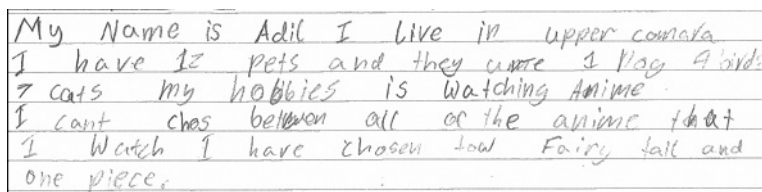 My Name is Adil I Live in upper comara
I have 12 pets and they are 1 Dog 4 birds
7 cats my hobbies is watching Anime
I cant ches between all of the anime that
I Watch I have chosen tow Fairy tail and
one piece.